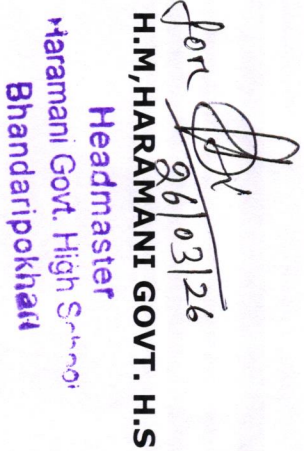 for
26/03/26
H.M,HARAMANI GOVT. H.S
Headmaster
Haramani Govt. High School
Bhandaripokhari